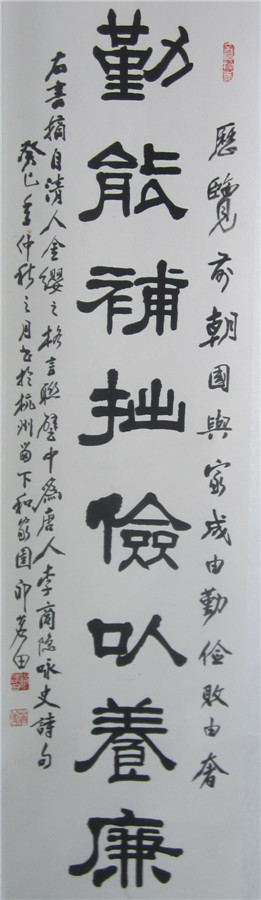 歷覽前朝國與家成由勤儉敗由奢
勤能補拙儉以養廉
右書摘自清人金纓之格言聯璧中為唐人李商隱咏史詩句
癸巳年仲秋之月书於杭州留下和家园